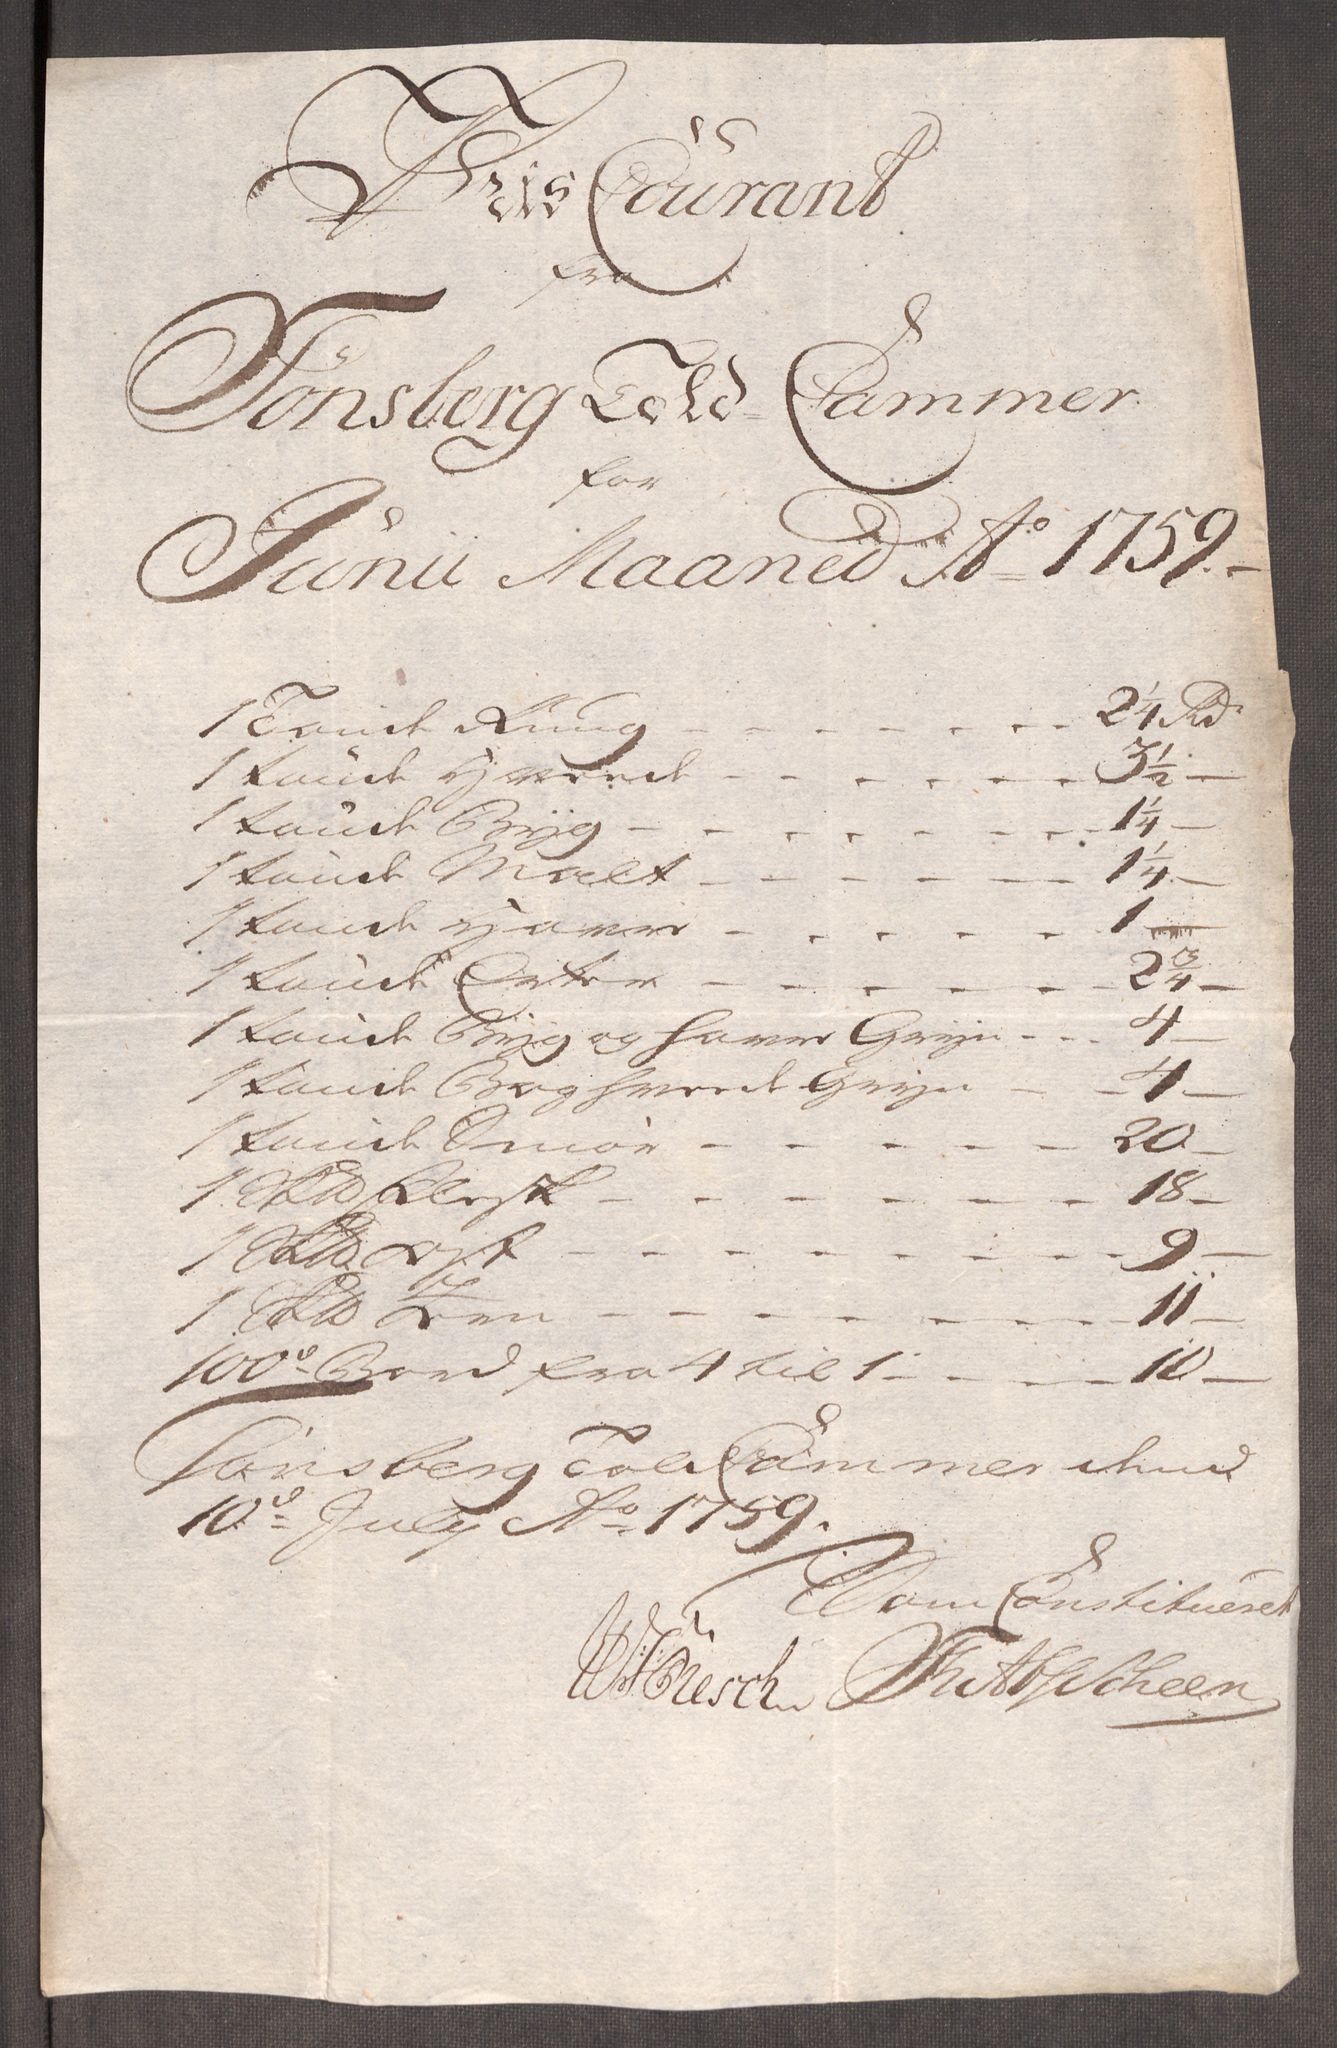 Priis Courant
fra
Tönsberg Told-Cammer
for
Junii Maaned Ao 1759.-
1 Tønde Rŭug - - - - - - 2¼ Rd
1 tønde Hveede - - - - - - 3½ -
1 tønde Bÿg - - - - - - 1¼ -
1 tønde Malt - - - - - - 1¼ -
1 tønde Haver - - - - - - 1 -
1 tønde Erter - - - - - - 2¾ -
1 tønde Bÿg og haver Grÿn - - - 4 -
1 tønde Boghvede Grÿn - - 4 -
1 tønde Smör - - - - - - 20 -
1 Sklb flesk - - - - - - 18 -
1 Sklb - - - - - - 9 -
1 Sklb - - - - - - 11 -
100de Bord fra 4 til 1 - - - - 10 -
Tönsberg Told Cammer dend
10de July Ao 1759.
Som Constitueret
Scheen